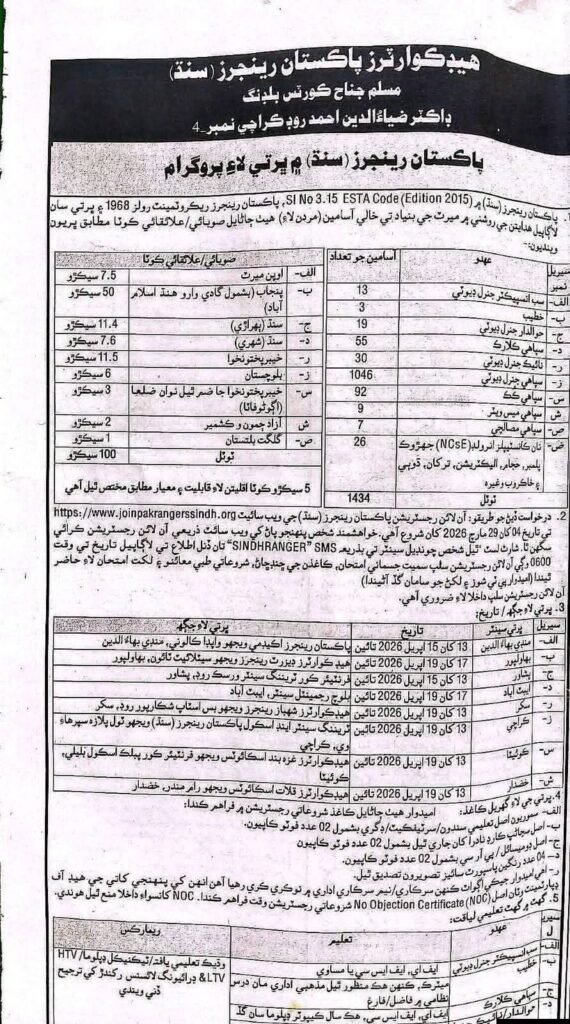 هيڊ ڪوارٽرز پاڪستان رينجرز (سنڌ)
مسلم جناح ڪورٽس بلڊنگ
ڊاڪٽر ضياءُ الدين احمد روڊ ڪراچي نمبر_4
پاڪستان رينجرز (سنڌ) ۾ ڀرتي لاءِ پروگرام
1. پاڪستان رينجرز (سنڌ) ۾ SI No 3.15 ESTA Code (Edition 2015)، پاڪستان رينجرز ريڪروٽمينٽ رولز 1968 ۽ ڀرتي سان
لاڳاپيل هدايتن جي روشني ۾ ميرٽ جي بنياد تي خالي آسامين (مردن لاءِ) هيٺ ڄاڻايل صوبائي/علائقائي ڪوٽا مطابق ڀريون
وينديون:-
سيريل نمبر عهدو آسامين جو تعداد
الف- سب انسپيڪٽر جنرل ڊيوٽي 13
ب- خطيب 3
ج- حوالدار جنرل ڊيوٽي 19
د- سپاهي ڪلارڪ 55
ر- نائيڪ جنرل ڊيوٽي 30
ز- سپاهي جنرل ڊيوٽي 1046
س- سپاهي ڪڪ 92
ش- سپاهي ميس ويٽر 9
ص- سپاهي مصالچي 7
ض- نان ڪانسٽيبلز انرولڊ (NCsE) جهڙوڪ 26
پلمبر، حجام، اليڪٽريشن، ترکان، ڌوٻي
۽ خاڪروب وغيره
ٽوٽل 1434
صوبائي/علائقائي ڪوٽا
الف- اوپن ميرٽ 7.5 سيڪڙو
ب- پنجاب (بشمول گادي وارو هنڌ اسلام آباد) 50 سيڪڙو
ج- سنڌ (ٻهراڙي) 11.4 سيڪڙو
د- سنڌ (شهري) 7.6 سيڪڙو
ر- خيبرپختونخوا 11.5 سيڪڙو
ز- بلوچستان 6 سيڪڙو
س- خيبرپختونخوا جا ضم ٿيل نوان ضلعا 3 سيڪڙو
(اڳوڻو فاٽا)
ش- آزاد ڄمون و ڪشمير 2 سيڪڙو
ص- گلگت بلتستان 1 سيڪڙو
ٽوٽل 100 سيڪڙو
5 سيڪڙو ڪوٽا اقليتن لاءِ قابليت ۽ معيار مطابق مختص ٿيل آهي
2. درخواست ڏيڻ جو طريقو: آن لائن رجسٽريشن پاڪستان رينجرز (سنڌ) جي ويب سائيٽ https://www.joinpakrangerssindh.org
تي تاريخ 04 کان 29 مارچ 2026 کان شروع آهي. خواهشمند شخص پنهنجو پاڻ کي ويب سائيٽ ذريعي آن لائن رجسٽريشن ڪرائي
سگهن ٿا. شارٽ لسٽ ٿيل شخص چونڊيل سينٽر تي بذريعہ SMS "SINDHRANGER" تان ڏنل اطلاع تي لاڳاپيل تاريخ تي وقت
0600 وڳي آن لائن رجسٽريشن سلپ سميت جسماني امتحان، ڪاغذن جي ڇنڊڇاڻ، شروعاتي طبي معائنو ۽ لکت امتحان لاءِ حاضر
ٿيندا (اميدوار پي ٽي شوز ۽ لکڻ جو سامان گڏ آڻيندا)
آن لائن رجسٽريشن سلپ داخلا لاءِ ضروري آهي.
3. ڀرتي لاءِ جڳھ / تاريخ:
سيريل ڀرتي سينٽر تاريخ ڀرتي لاءِ جڳھ
الف- منڊي بهاءُ الدين 13 کان 15 اپريل 2026 تائين پاڪستان رينجرز اڪيڊمي ويجهو واپڊا ڪالوني، منڊي بهاءُ الدين
ب- بهاولپور 17 کان 19 اپريل 2026 تائين هيڊ ڪوارٽرز ڊيزرٽ رينجرز ويجهو سيٽلائيٽ ٽائون، بهاولپور
ج- پشاور 13 کان 15 اپريل 2026 تائين فرنٽيئر ڪور ٽريننگ سينٽر ورسڪ روڊ، پشاور
د- ايبٽ آباد 17 کان 19 اپريل 2026 تائين بلوچ رجمينٽل سينٽر، ايبٽ آباد
ر- سکر 13 کان 19 اپريل 2026 تائين هيڊڪوارٽرز شهباز رينجرز ويجهو بس اسٽاپ شڪارپور روڊ، سکر
ز- ڪراچي 13 کان 19 اپريل 2026 تائين ٽريننگ سينٽر اينڊ اسڪول پاڪستان رينجرز (سنڌ) ويجهو ٽول پلازه سپر هاءِ
وي، ڪراچي
س- ڪوئيٽا 13 کان 19 اپريل 2026 تائين هيڊڪوارٽرز غزه بند اسڪائوٽس ويجهو فرنٽيئر ڪور پبلڪ اسڪول بليلي،
ڪوئيٽا
ش- خضدار 13 کان 19 اپريل 2026 تائين هيڊڪوارٽرز قلات اسڪائوٽس ويجهو رام مندر، خضدار
4. ڀرتي جي لاءِ گهربل ڪاغذ: اميدوار هيٺ ڄاڻايل ڪاغذ شروعاتي رجسٽريشن ۾ فراهم ڪندا:
الف- سموريون اصل تعليمي سندون/سرٽيفڪيٽ/ڊگري بشمول 02 عدد فوٽو ڪاپيون.
ب- اصل سڃاڻپ ڪارڊ نادرا کان جاري ٿيل بشمول 02 عدد فوٽو ڪاپيون
ج- اصل ڊوميسائل/پي آر سي بشمول 02 عدد فوٽو ڪاپيون.
د- 04 عدد رنگين پاسپورٽ سائيز تصويرون تصديق ٿيل.
ر- اهي اميدوار جيڪي اڳواٽ ڪنهن سرڪاري/نيم سرڪاري اداري ۾ نوڪري ڪري رهيا آهن انهن کي پنهنجي کاتي جي هيڊ آف
ڊپارٽمينٽ وٽان اصل No Objection Certificate (NOC) شروعاتي رجسٽريشن وقت فراهم ڪندا. NOC کانسواءِ داخلا منع ٿيل هوندي.
5. گهٽ ۾ گهٽ تعليمي لياقت:
سيريل عهدو تعليم ريمارڪس
الف- سب انسپيڪٽر جنرل ڊيوٽي ايف اي، ايف ايس سي يا مساوي
ب- خطيب ميٽرڪ، ڪنهن هڪ منظور ٿيل مذهبي اداري مان درس
نظامي ۾ فاضل/فارغ
ج- سپاهي ڪلارڪ ايف اي، ايف ايس سي، هڪ سال ڪمپيوٽر ڊپلوما سان گڏ
وڌيڪ تعليمي يافتہ/ٽيڪنيڪل ڊپلوما/ HTV
LTV& ڊرائيونگ لائسنس رکندڙ کي ترجيح
ڏني ويندي